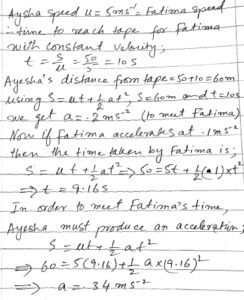 Aysha speed u = 5ms⁻¹ = Fatima speed
∴ time to reach tape for Fatima
with constant velocity;
t = S/u = 50/5 = 10 s
Ayesha's distance from tape = 50+10 = 60m
using S = ut + 1/2 at², S = 60m and t = 10s
we get a = .2 ms⁻² (to meet Fatima)
Now if Fatima accelerates at .1ms⁻²
then the time taken by Fatima is;
S = ut + 1/2 at² ⇒ 50 = 5t + 1/2(.1)xt²
⇒ t = 9.16 s
In order to meet Fatima's time,
Ayesha must produce an acceleration;
S = ut + 1/2 at²
⇒ 60 = 5(9.16) + 1/2 a x (9.16)²
⇒ a = .34 ms⁻²